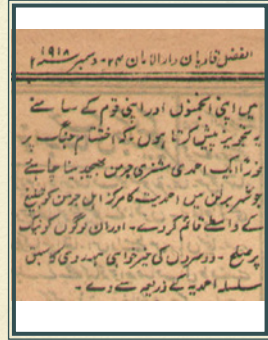 الفضل قادیان دارالامان ۲۴ - دسمبر ۱۹۱۸ء
میں اپنی انجمنوں اور اپنی قوم کے سامنے
یہ تجویز پیش کرتا ہوں کہ اختتام جنگ پر
فوراً ایک احمدی مشنری جرمن بھیجدینا چاہئے
جو شہر برلن میں احمدیت کا مرکز اہل جرمن کو تبلیغ
کے واسطے قائم کر دے - اور ان لوگوں کو نیک
پر صلح - دوسروں کی خیر خواہی ہمدردی کا سبق
سلسلہ احمدیہ کے ذریعہ سے دے -